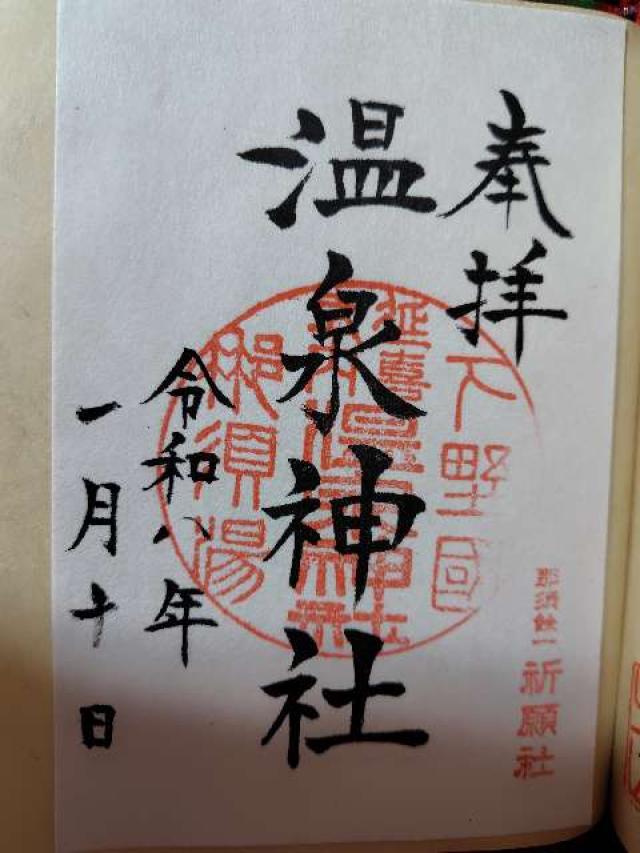 奉拝
下野國
延喜式内温泉神社
那須湯
温泉神社
令和八年
一月十日
那須餘一
祈願社